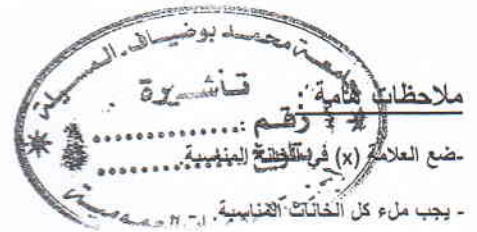 جامعة محمد بوضياف. المسيلة
تأشيرة
ملاحظات هامة:
رقم :..............
-ضع العلامة (x) في الخانة المناسبة.
- يجب ملء كل الخانات المناسبة.